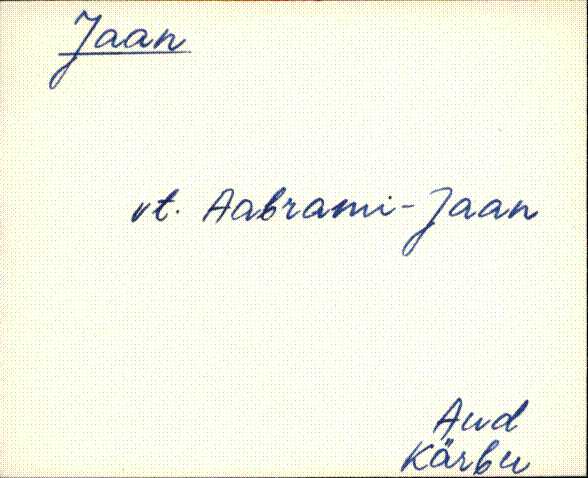 Jaan
vt. Aabrami-Jaan
Aud
Kärbu